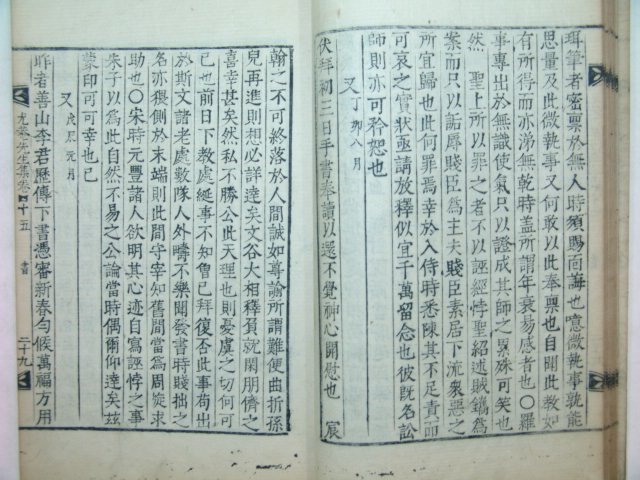 珥筆者密稟於無人時須賜回誨也噫微執事孰能
思量及此微執事又何敢以此奉稟也自聞此敎如
有所得而亦涕無乾時蓋所謂年衰易感者也○羅
事專出於無識使氣只以證成其師之累殊可笑也
然 聖上所以罪之者不以誣經悖聖紹述賊鑴爲
案而只以詬辱賤臣爲主夫賤臣素居下流衆惡之
所宜歸也此何罪焉幸於入侍時悉陳其不足責而
可哀之實狀亟請放釋似宜千萬留念也彼旣名訟
師則亦可矜恕也
又 丁卯八月
伏拜初三日手書奉讀以還不覺神心開慰也 宸
翰之不可終落於人間誠如尊諭所謂難便曲折孫
兒再進則想必詳達矣文谷大相釋負就閑朋儕之
喜幸甚矣然私不勝公此天理也則憂虞之切何可
已也前日下敎處綎事不知曾已拜復否此事苟出
於斯文諸老處數隊人外疇不樂聞發書時賤拙之
名亦猥側於末端則此間守宰知舊間當爲周旋求
助也○宋時元豐諸人欲明其心迹自寫誣悖之事
朱子以爲此自然不易之公論當時偶爾仰達矣玆
蒙印可可幸也
又 戊辰元月
昨者善山李君歷傳下書憑審新春匀候萬福方用
尤菴先生集卷 十五 書 二十九